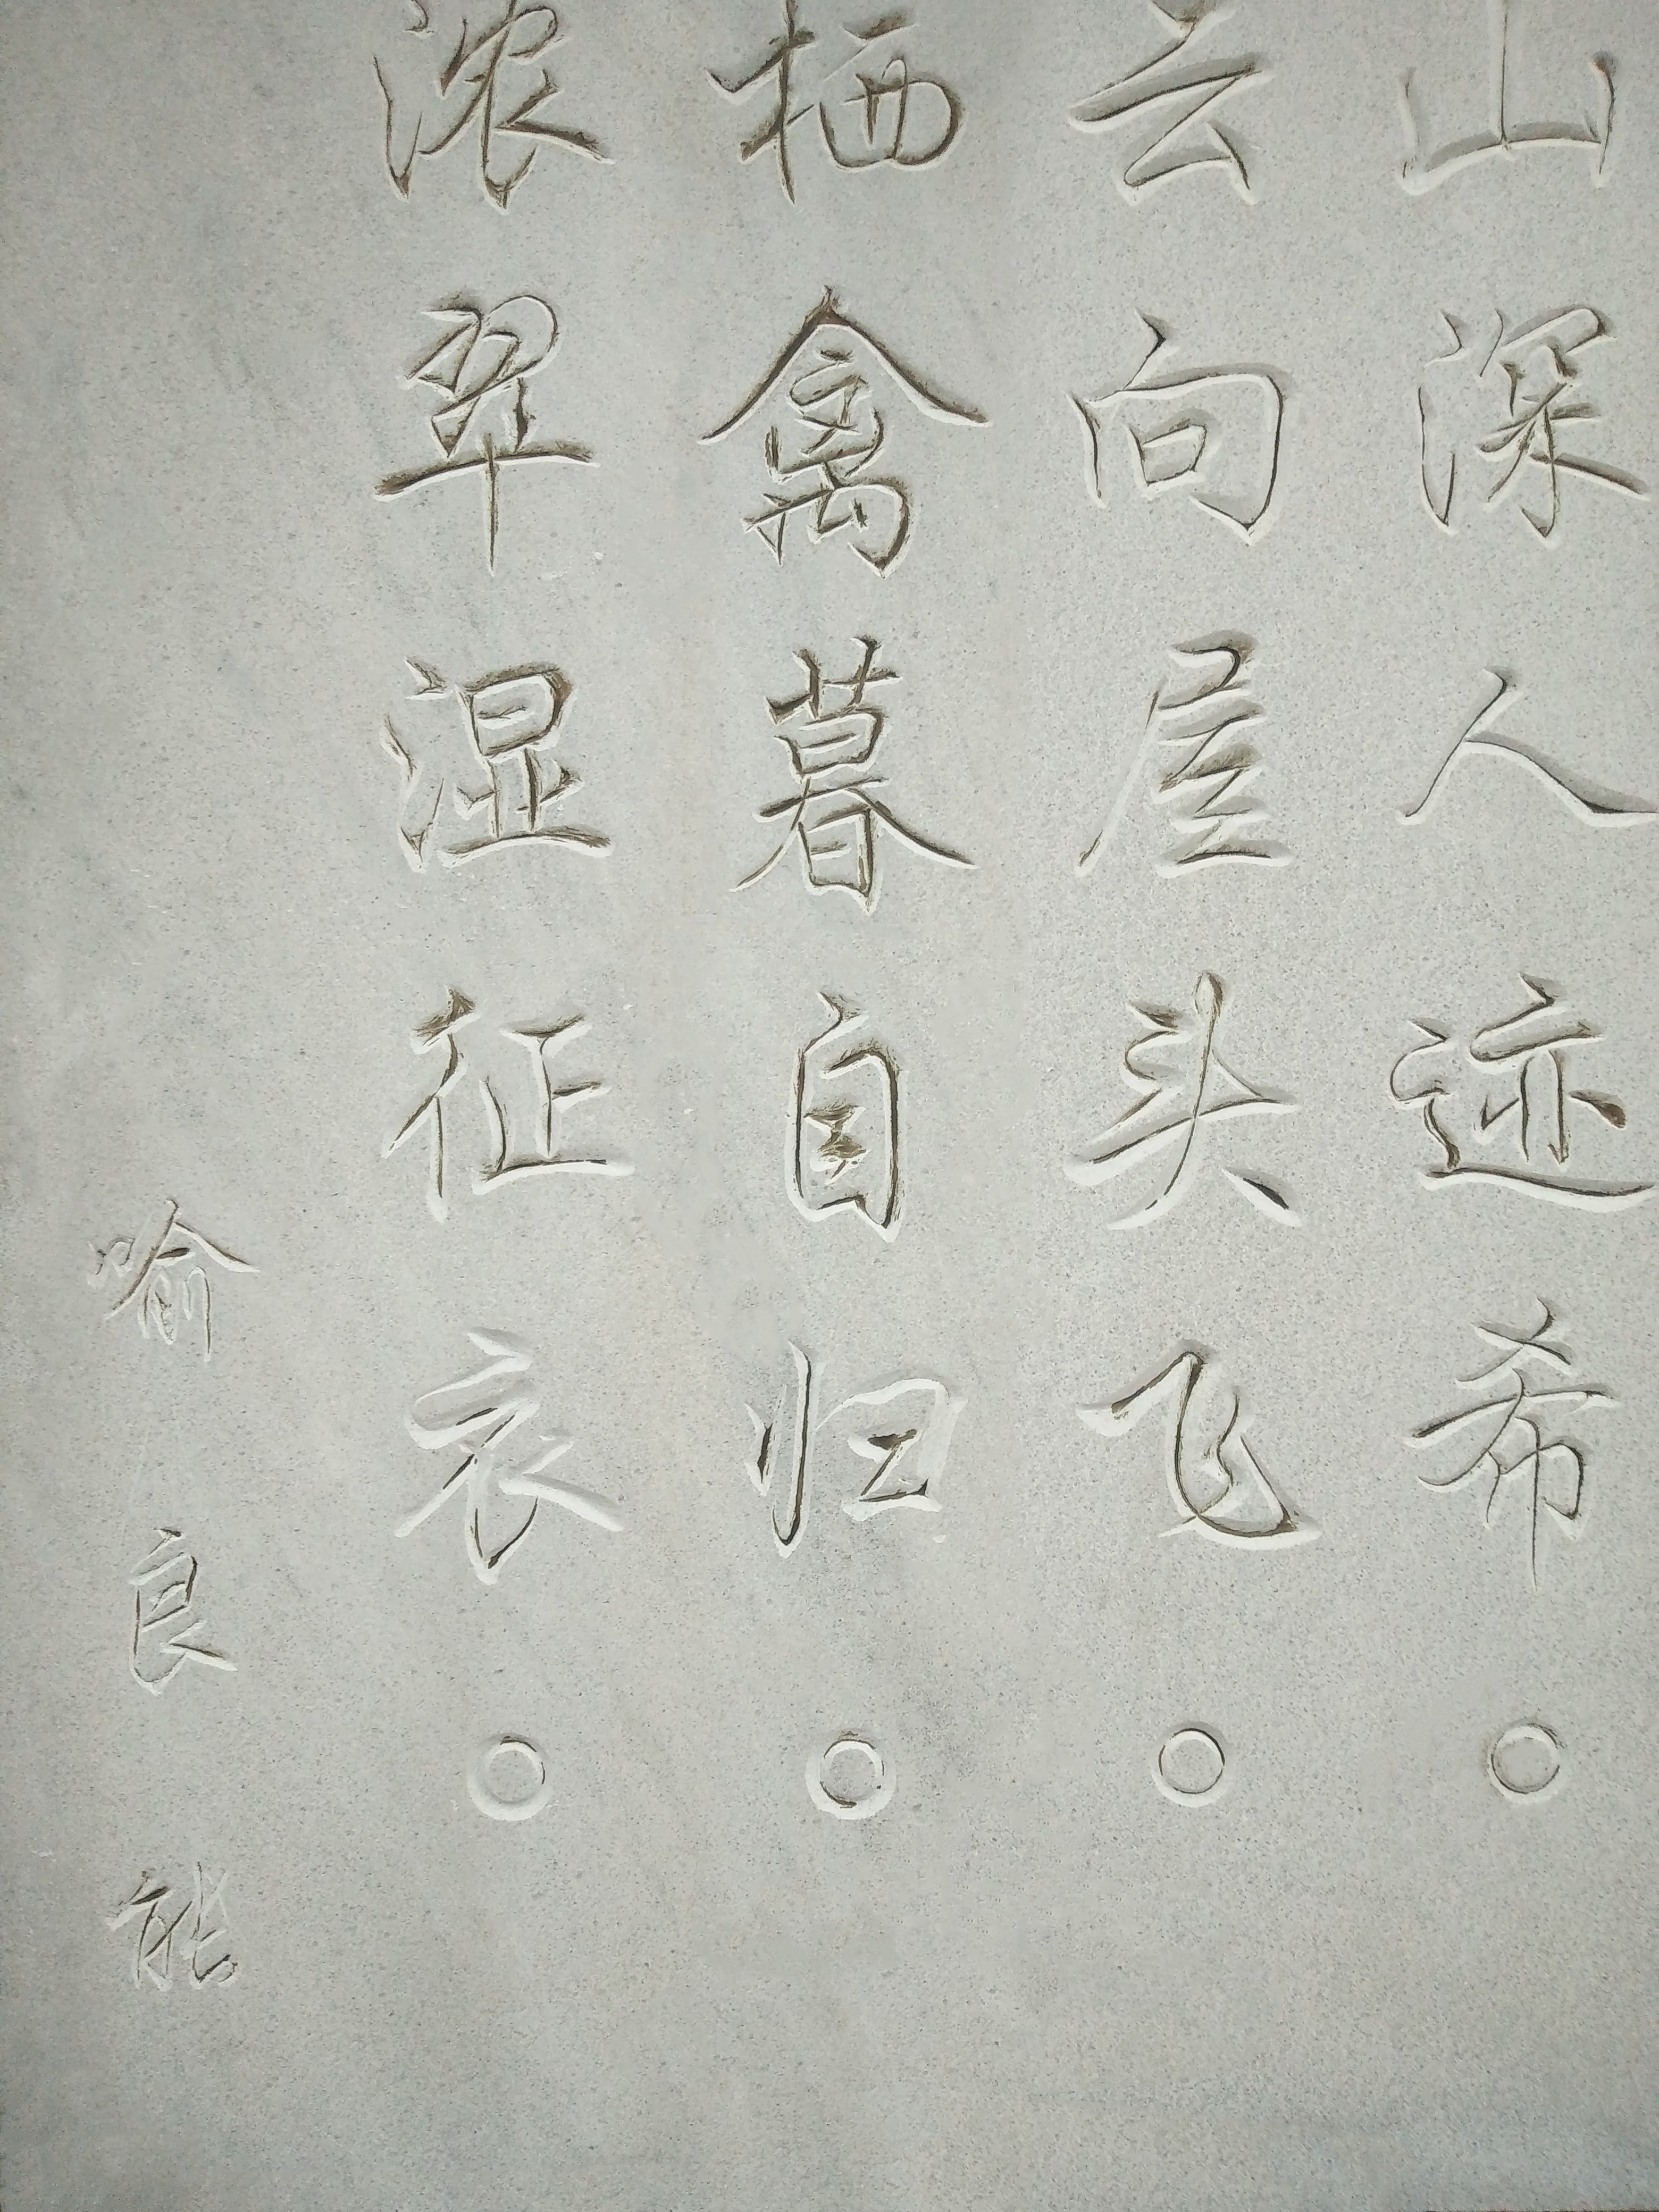 山深人迹希。
云向屋头飞。
栖禽暮自归。
浓翠湿征衣。
喻良能